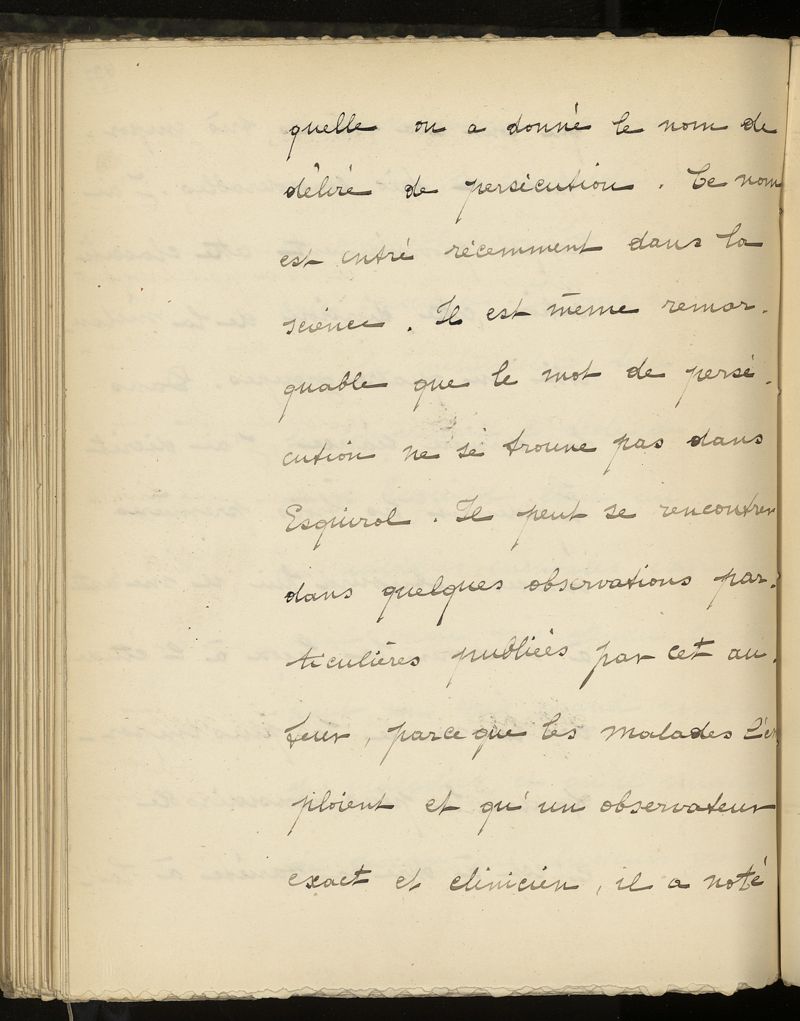 quelle on a donné le nom de
délire de persécution. Ce nom
est entré récemment dans la
science. Il est même remar-
quable que le mot de persé-
cution ne se trouve pas dans
Esquirol. Il peut se rencontrer
dans quelques observations par-
ticulières publiées par cet au-
teur, parce que les malades l'em
ploient et qu'un observateur
exact et clinicien, il a noté